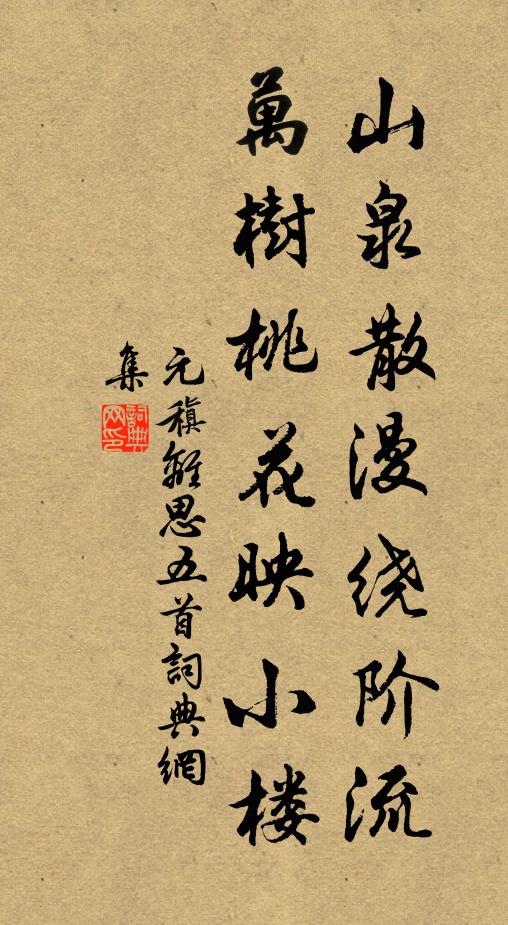 山泉散漫绕阶流
萬樹桃花映小楼
元稹離思五首詞典網
集
詞典
网印